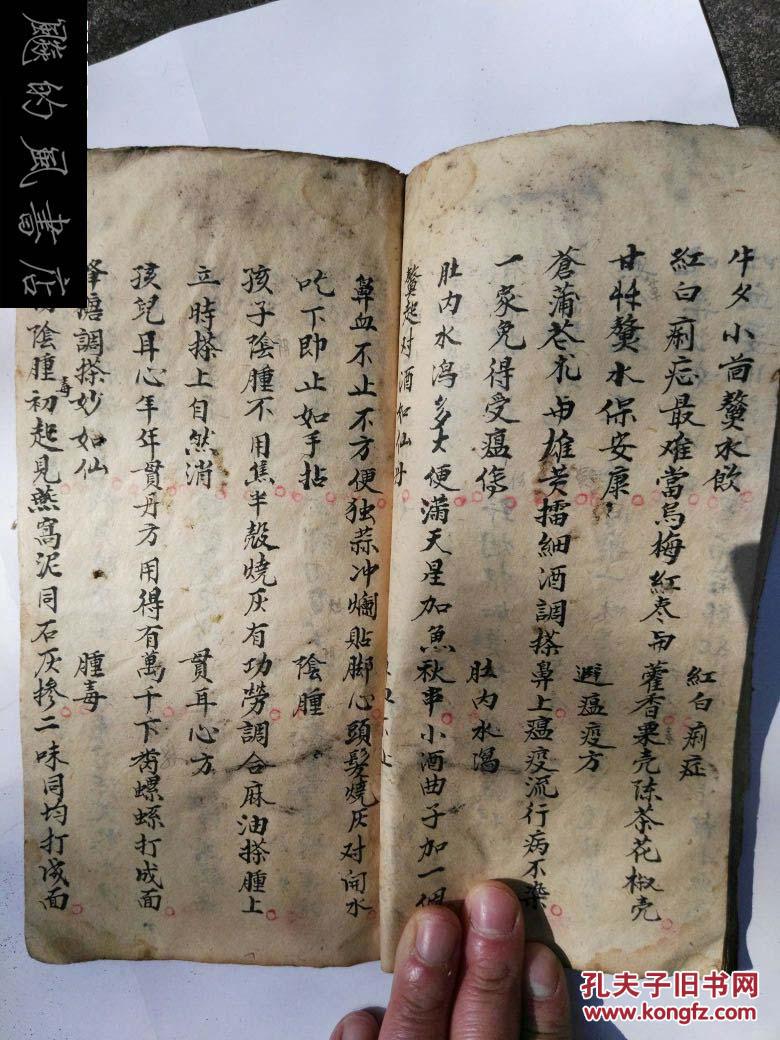 飚的风書店
牛夕小茴熬水飲
紅白痢症
紅白痢症最难當烏梅紅枣与藿香粟壳陈茶花椒壳
甘艸熬水保安康
避瘟疫方
蒼蒲苍朮与雄黄擂細酒調搽鼻上瘟疫流行病不染
一家免得受瘟傷
肚内水瀉
肚内水瀉多大便滿天星加魚秋串小酒曲子加一個
熬起对酒如仙丹
鼻血不止不方便独蒜冲爛貼脚心頭髮燒灰对開水
吃下即止如手拈
陰腫
孩子陰腫不用焦半殼燒灰有功勞調合麻油搽腫上
立時搽上自然消
贯耳心方
孩兒耳心年年贯丹方用得有萬千下螺螄打成面
糖調搽妙如仙
腫毒
陰腫毒初起見燕窩泥同石灰摻二味同均打成面
孔夫子旧书网
www.kongfz.com